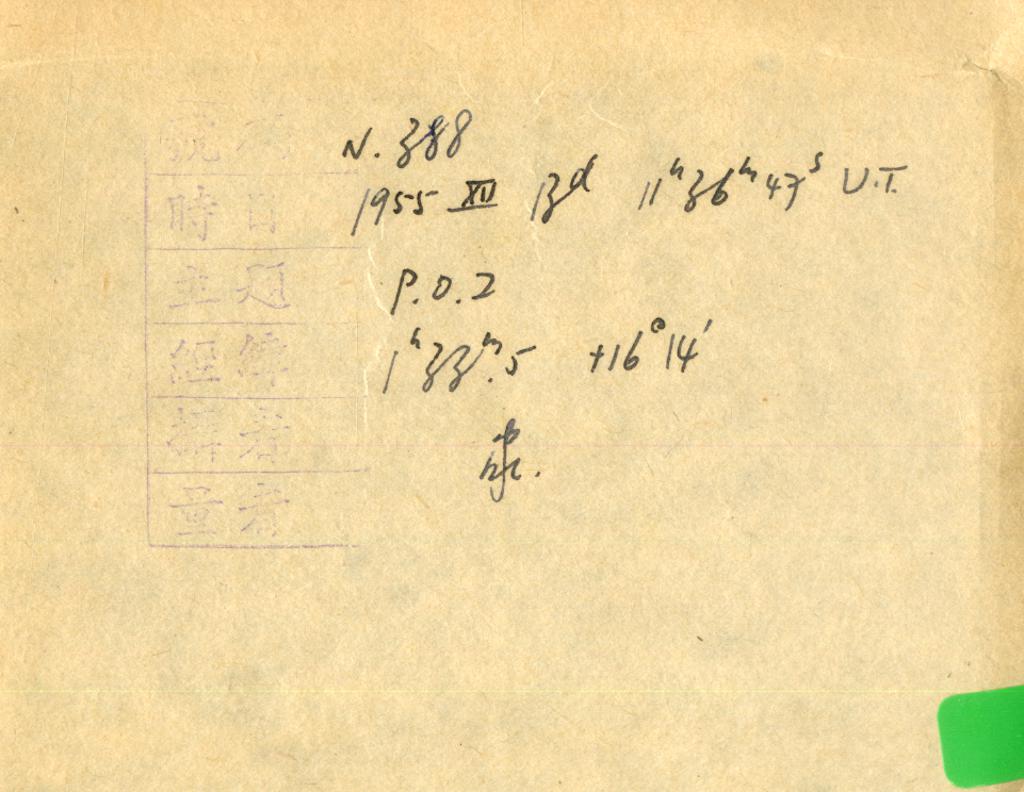 N. 388
時日 1955 XII 13ᵈ 11ʰ36ᵐ47ˢ U.T.
主題 P.O.2
經緯 1ʰ33ᵐ.5 +16°14′
攝者
量者